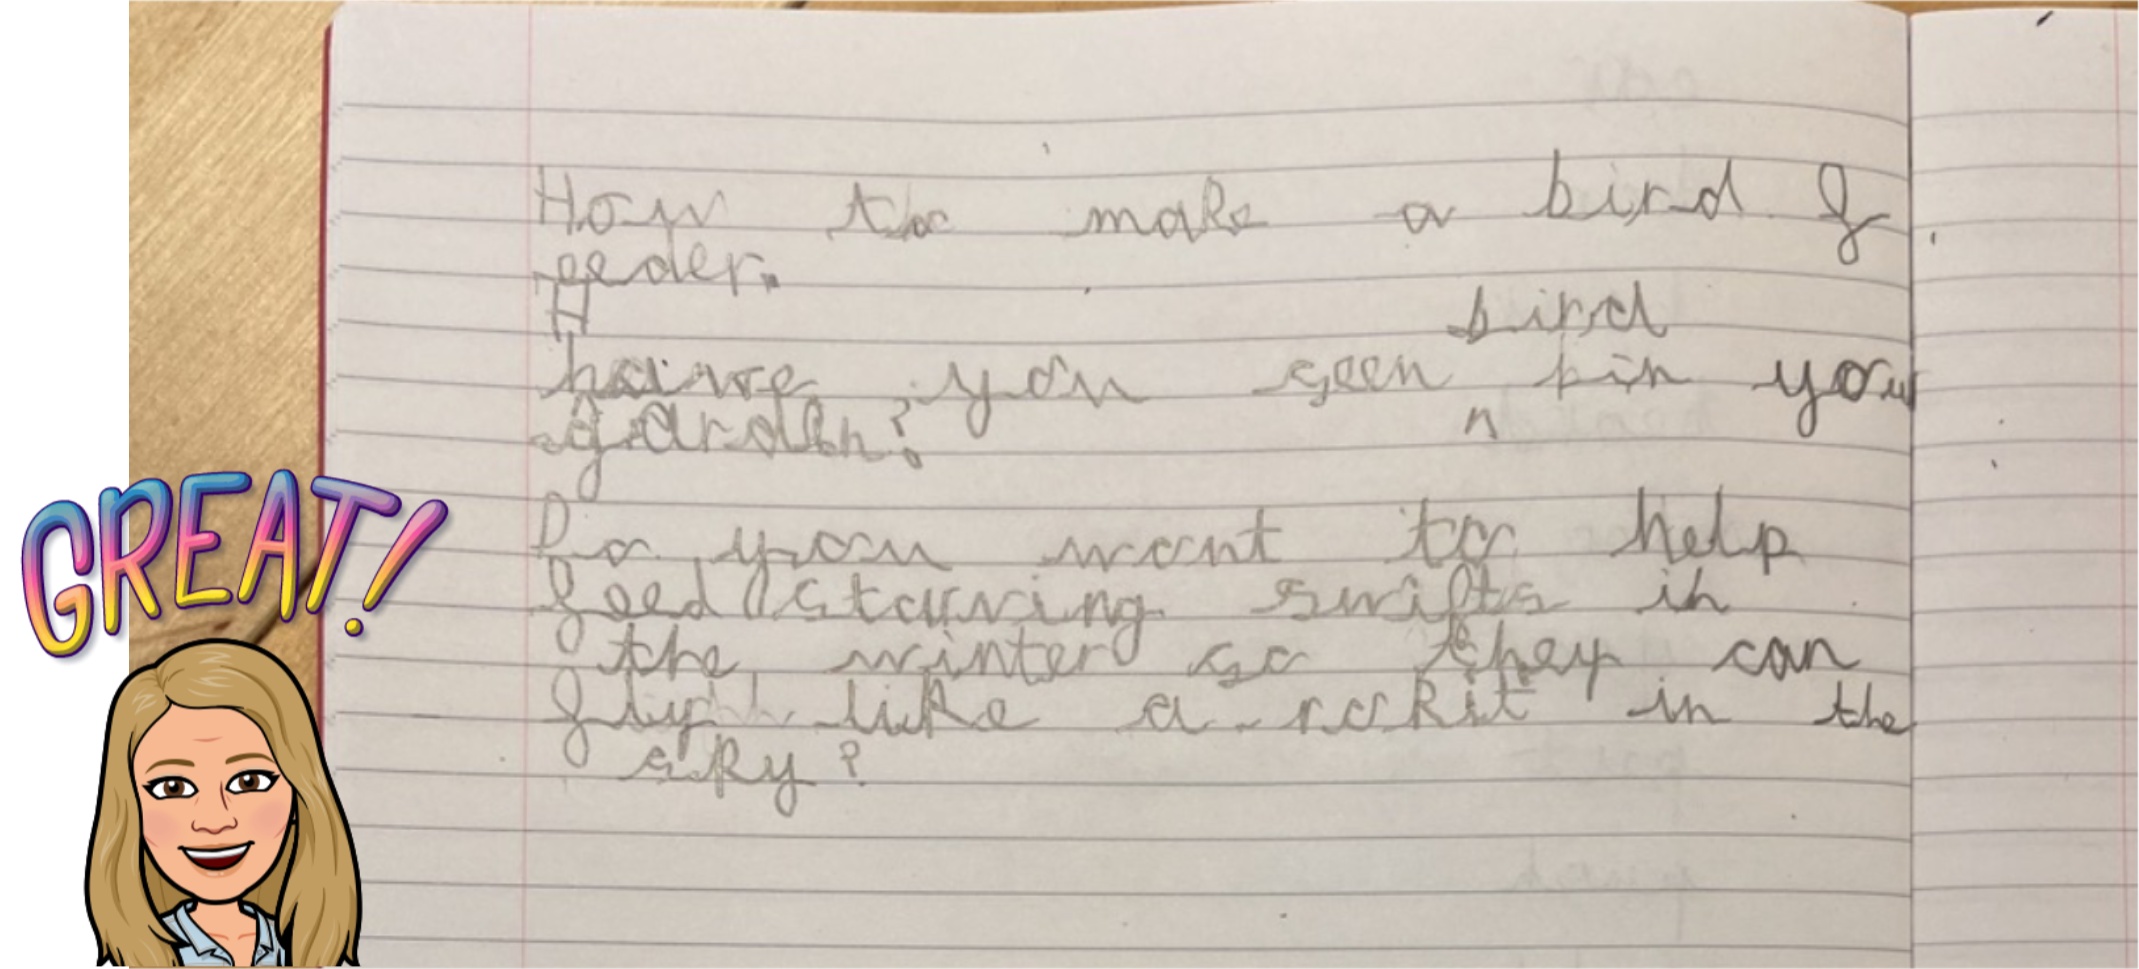 GREAT!
How to make a bird f
eeder.
H
bird
have you seen bin your
n
garden?
Do you want to help
feed starving swifts in
the winter so they can
fly like a rokit in the
sky?